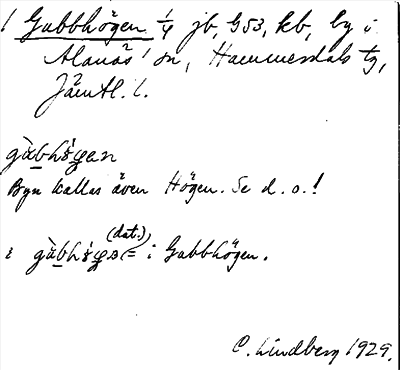 1 Gubbhögen 1/4 jb, G53, kb, by i
Alanäs sn, Hammerdals tg,
Jämtl. l.
gùbhö̀gen
Byn kallas även Högen. Se d. o.!
(dat.)
i gùbhö̀gɷ = i Gubbhögen.
C. Lindberg 1929.